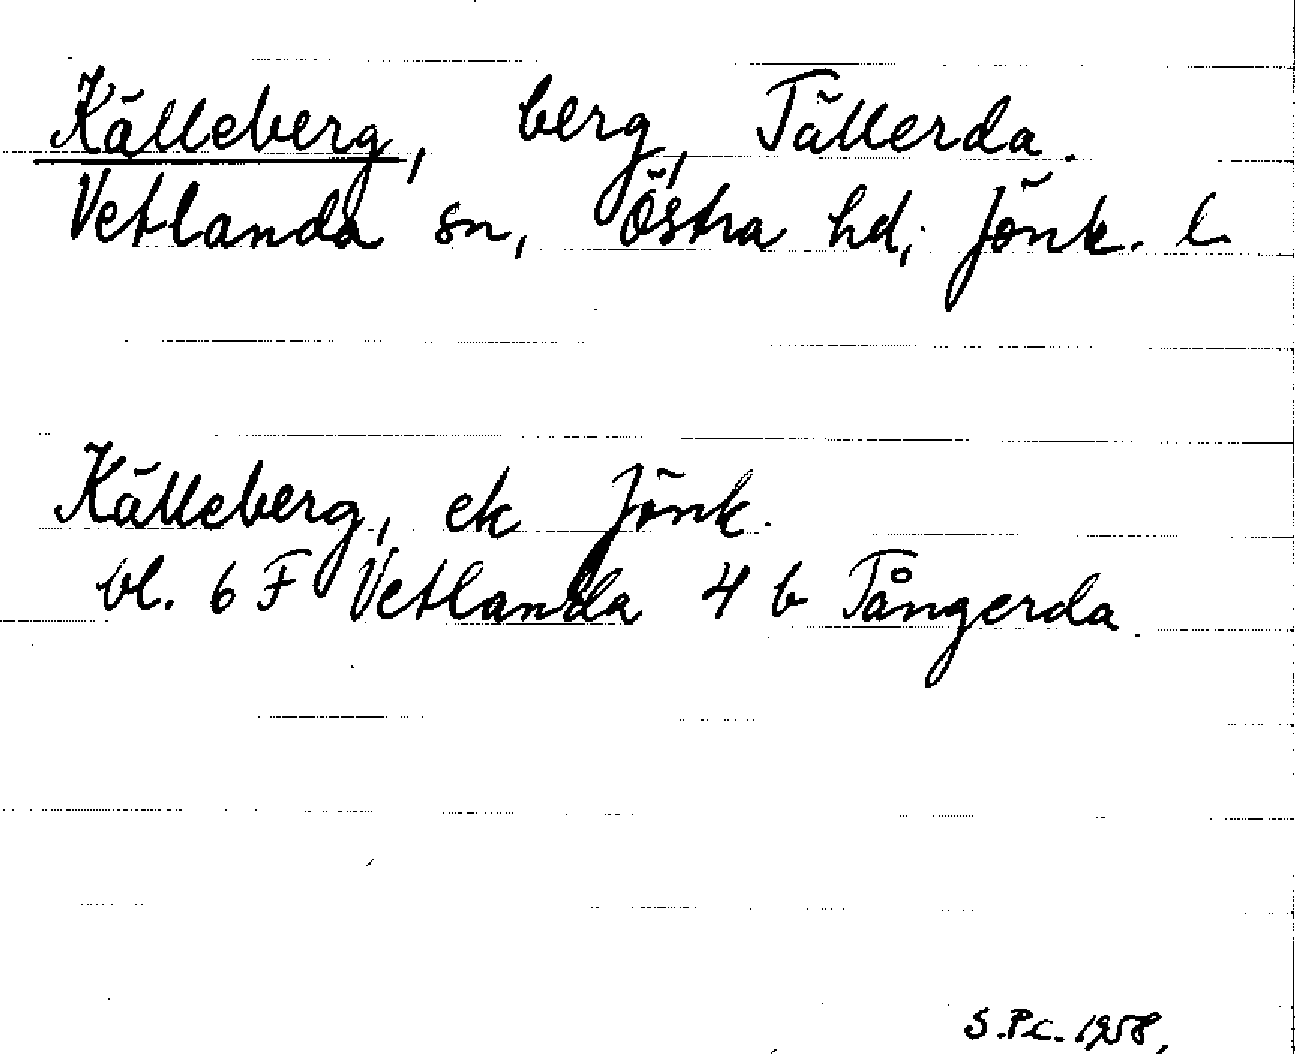 Källeberg, berg, Tällerda.
Vetlanda sn, Östra hd, Jönk. l
Källeberg, ek Jönk.
bl. 6 F Vetlanda 4 b Tångerda
S.P.C. 1958,